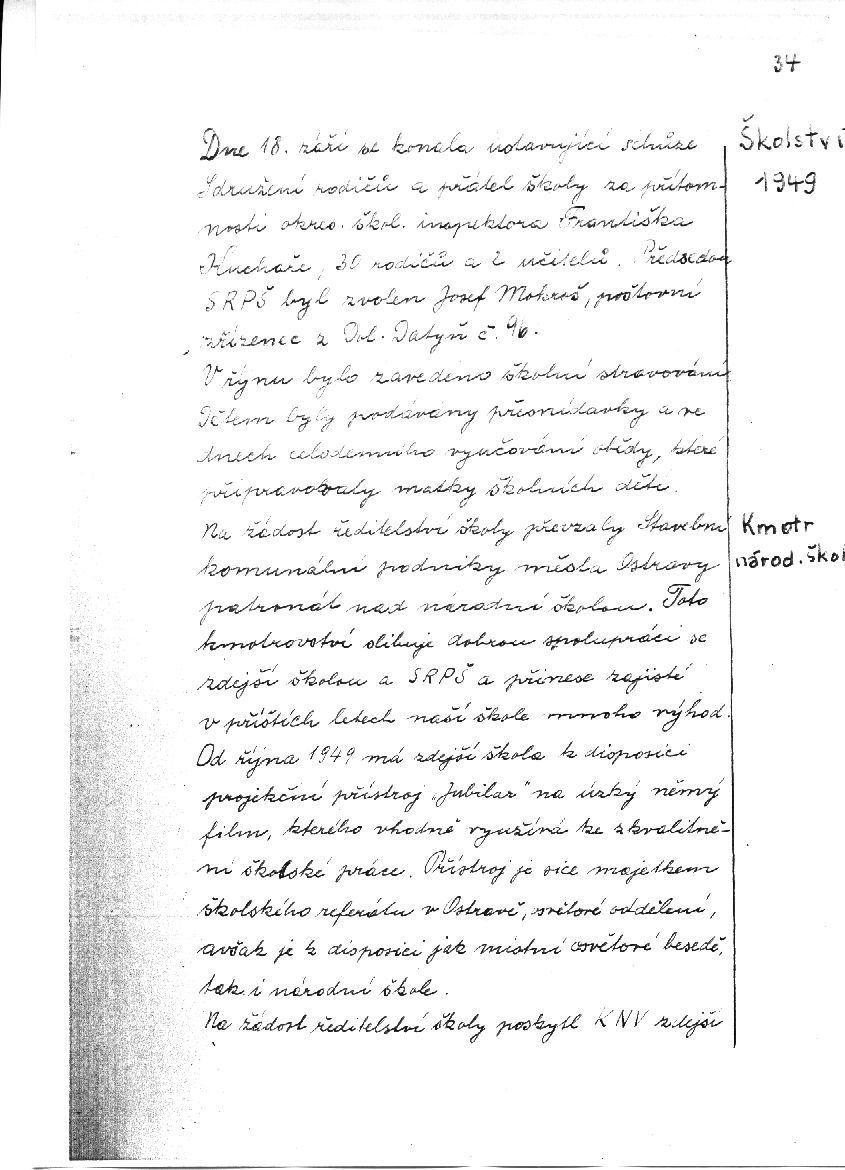 34
Školství
1949
Dne 18. září se konala ustavující schůze
Sdružení rodičů a přátel školy za přítom-
nosti okres. škol. inspektora Františka
Kuchaře, 30 rodičů a 2 učitelů. Předsedou
SRPŠ byl zvolen Josef Mokroš, poštovní
zřízenec z Dol. Datyň č. 96.
V říjnu bylo zavedeno školní stravování.
Dětem byly podávány přesnídávky a ve
dnech celodenního vyučování obědy, které
připravovaly matky školních dětí.
Kmotr
národ. škol
Na žádost ředitelství školy převzaly Stavební
komunální podniky města Ostravy
patronát nad národní školou. Toto
kmotrovství slibuje dobrou spolupráci se
zdejší školou a SRPŠ a přinese zajisté
v příštích letech naší škole mnoho výhod.
Od října 1949 má zdejší škola k disposici
projekční přístroj „Jubilar" na úzký němý
film, kterého vhodně využívá ke zkvalitně-
ní školské práce. Přístroj je sice majetkem
školského referátu v Ostravě, osvětové oddělení,
avšak je k disposici jak místní osvětové besedě,
tak i národní škole.
Na žádost ředitelství školy poskytl KNV zdejší